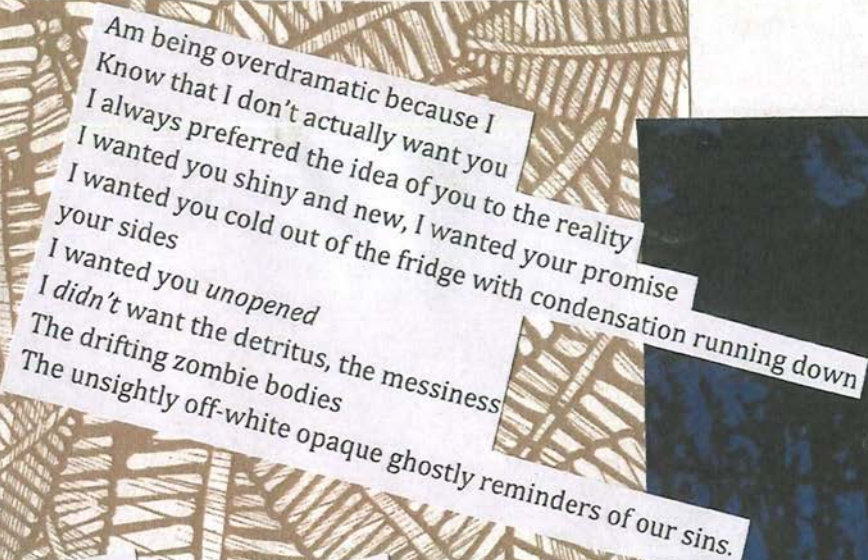 Am being overdramatic because I
Know that I don't actually want you
I always preferred the idea of you to the reality
I wanted you shiny and new, I wanted your promise
I wanted you cold out of the fridge with condensation running down
your sides
I wanted you unopened
I didn't want the detritus, the messiness
The drifting zombie bodies
The unsightly off-white opaque ghostly reminders of our sins.